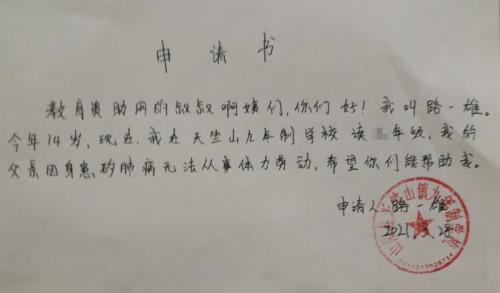 申请书
教育资助网的叔叔啊姨们，你们好！我叫路一雄。
今年14岁，现在，我在天竺山九年制学校读年级，我的
父亲因身患矽肺病无法从事体力劳动，希望你们能帮助我。
申请人路一雄
2021.3.28